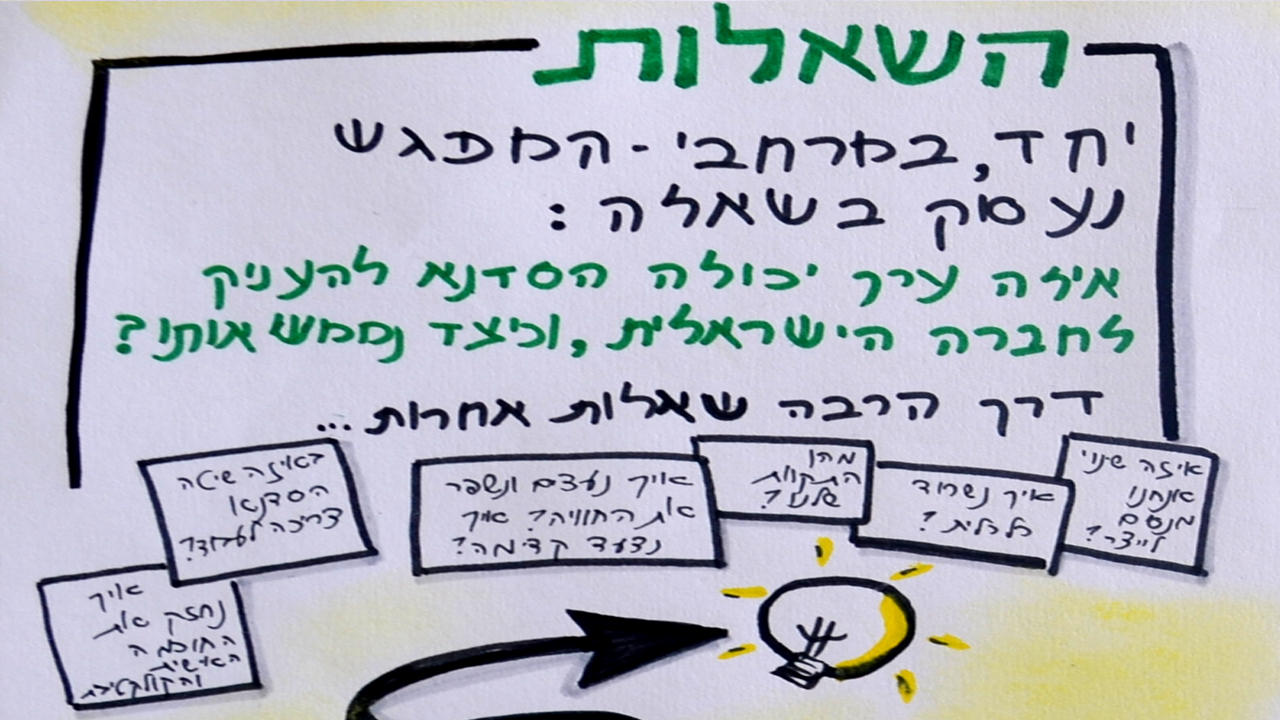 השאלות
יחד, במרחבי - המפגש
נעסוק בשאלה:
איזה ערך יכולה הסדנא להעניק
לחברה הישראלית, וכיצד נממש אותו?
דרך הרבה שאלות אחרות...
איזה שינוי
אנחנו
מנסים
לייצר?
איך נשרוד
כלכלית?
מהן
התקוות
שלנו?
איך נעצם ונשפר
את החוויה? איך
נצעד קדימה?
באיזה שיטה
הסדנא
צריכה לעבוד?
איך
נחזק את
החוכמה
האישית
והקולקטיבית